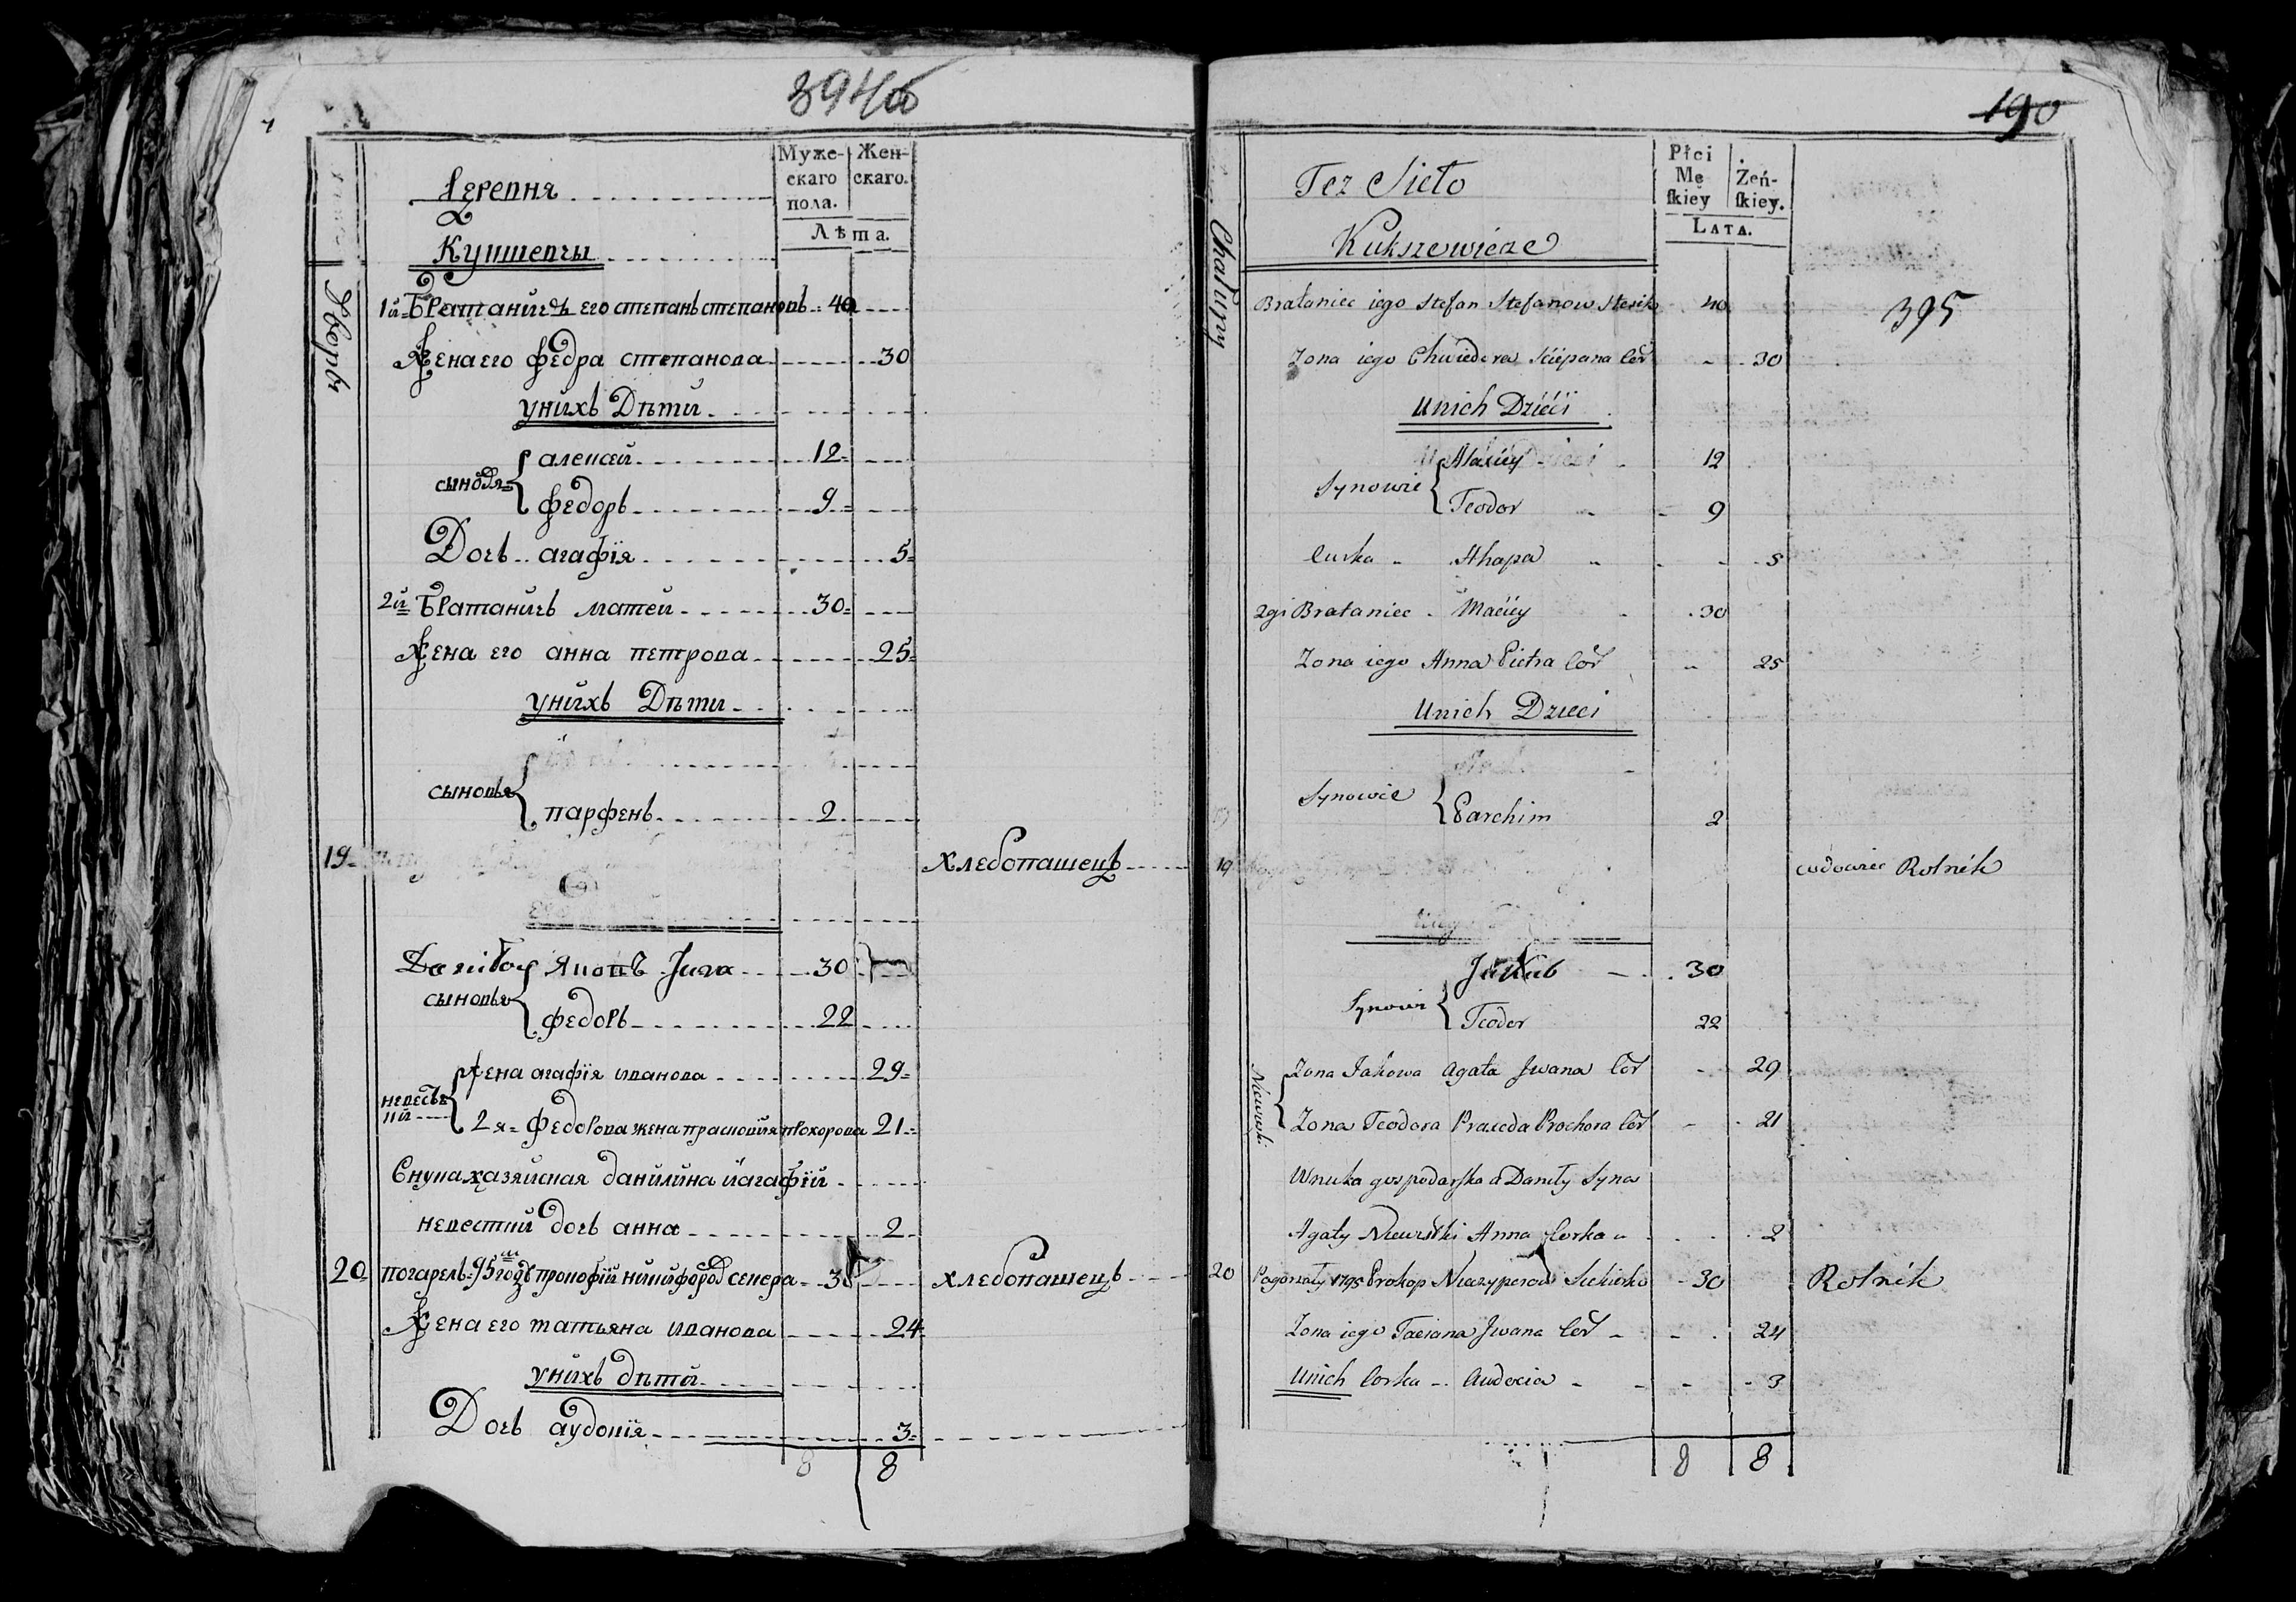 394б
Деревня
Кукшевичи
Муже-
скаго
пола.
Жен-
скаго.
Лѣта.
Дворы
1й Братаничъ его степанъ степановъ 40
Жена его федра степанова 30
у нихъ Дѣти
сыновья
алексей 12
федоръ 9
Дочь агафїя 5
2й Братаничъ матей 30
Жена его анна петрова 25
у нихъ Дѣти
сыновья
парфенъ 2
19 хлебопашецъ
Яковъ 30
сыновья
федоръ 22
невестки
жена агафїя иванова 29
2я федорова жена прасковия прохорова 21
Внука хазяйская данилина и агафїи
невестки дочь анна 2
20 погарелъ 95 году прокофїй никифоров секера 30 хлебопашецъ
Жена его татьяна иванова 24
у нихъ дѣти
Дочь аудокия 3
8 8
190
Tez Sieło
Kukszewicze
Płci
Mę
ſkiey
Żeń-
ſkiey.
LATA.
Chałupy
395
Brataniec iego Stefan Stefanow 40
Zona iego Chwiedora Sciepana Cor 30
Unich Dzieci
Synowie
Alaxiey 12
Teodor 9
Curka Ahapa 5
2gi Brataniec Maciey 30
Zona iego Anna Pietra Cor 25
Unich Dzieci
Synowie
Parchim 2
19 wdowiec Rolnik
Jakub 30
Synowi
Teodor 22
Niewiestki
Zona Jakowa Agata Jwana Cor 29
Zona Teodora Praxeda Prochora Cor 21
Wnuka gospodarska Daniły Syna
Agaty Niewistki Anna Corka 2
20 Pogorzały 1795 Prokop Niczyperow Siekierko 30 Rolnik
Zona iego Taciana Jwana Cor 24
Unich Corka Audocia 3
8 8